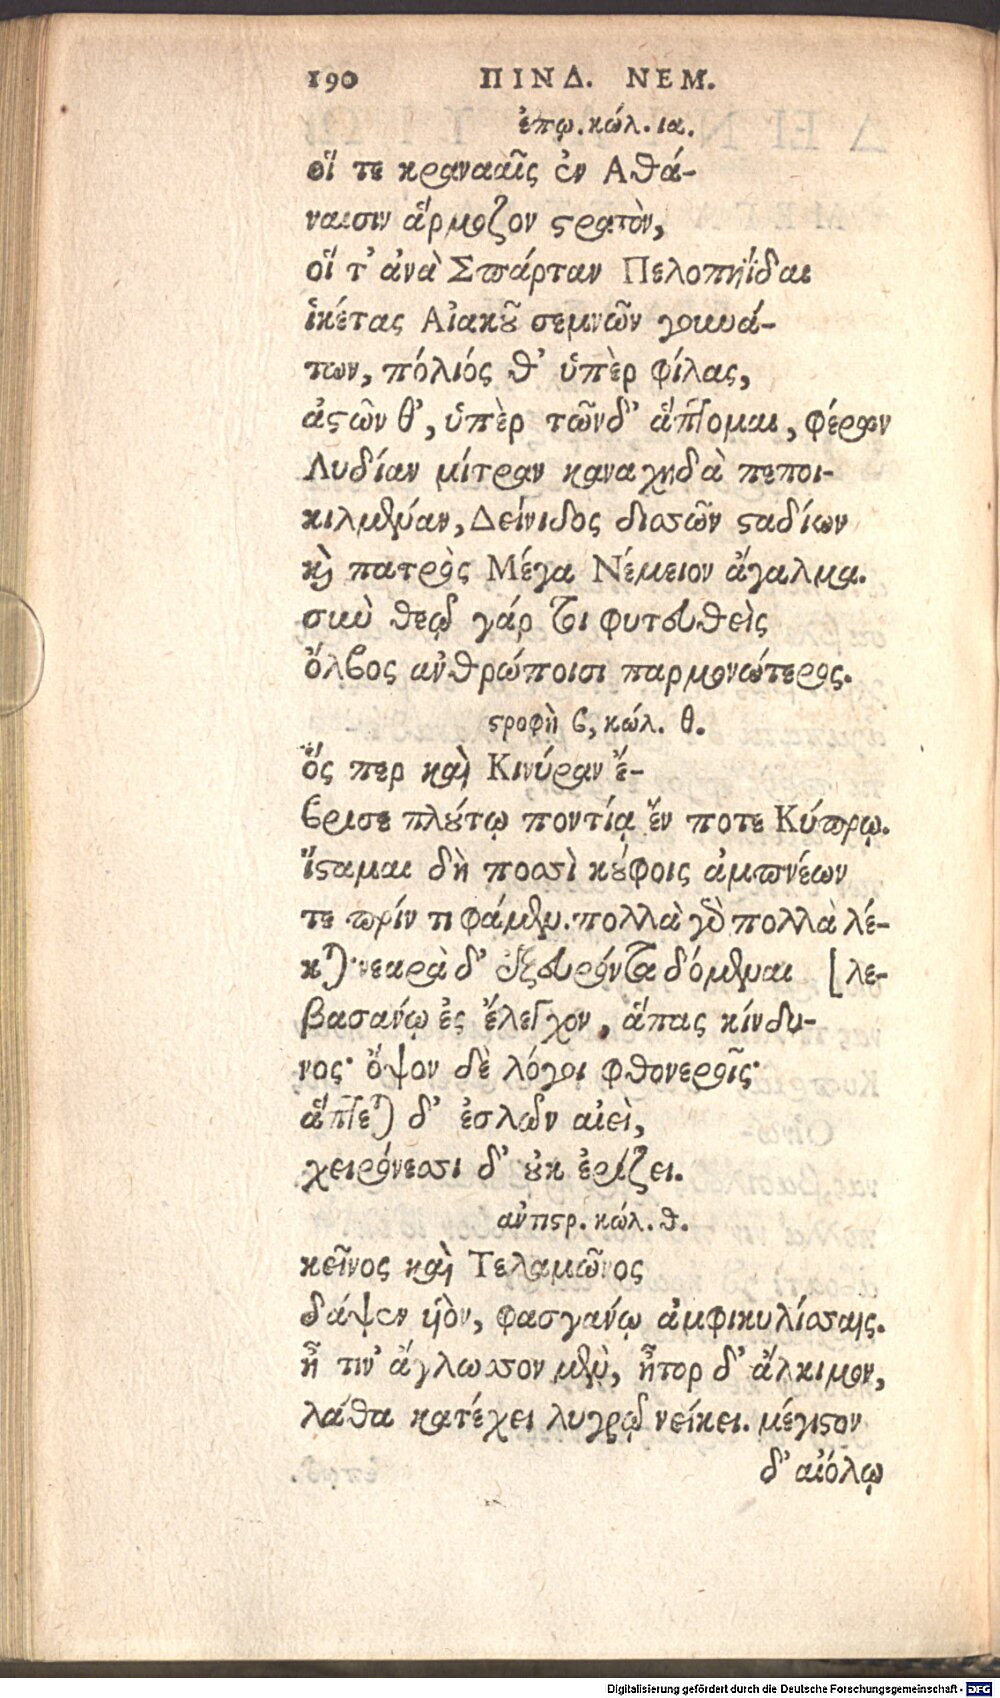 190 ΠΙΝΔ. ΝΕΜ.
ἐπῳ. κώλ. ια.
οἵ τε κρανααῖς ἐν Αθά-
ναισιν ἅρμοζον ϛρατὸν,
οἵ τ' ἀνὰ Σπάρταν Πελοπηΐδαι
ἱκέτας Αἰακοῦ σεμνῶν γουνά-
των, πόλιός θ' ὑπὲρ φίλας,
ἀϛῶν θ', ὑπὲρ τῶνδ' ἅπτομαι, φέρων
Λυδίαν μίτραν καναχηδὰ πεποι-
κιλμέναν, Δείνιδος δισσῶν ϛαδίων
καὶ πατρὸς Μέγα Νέμειον ἄγαλμα.
σιωὺ θεῷ γάρ τοι φυτευθεὶς
ὄλβος ἀνθρώποισι παρμονώτερος.
ϛροφὴ ϐ, κώλ. θ.
ὅς περ καὶ Κινύραν ἔ-
βρισε πλούτῳ ποντίᾳ ἔν ποτε Κύπρῳ.
ἵϛαμαι δὴ ποσσὶ κούφοις ἀμπνέων
τε πρίν τι φάμεν. πολλὰ γὰρ πολλὰ λέ-
κται· νεαρὰ δ' ἐξευρόντα δόμεναι [λε-
βασάνῳ ἐς ἔλεγχον, ἅπας κίνδυ-
νος· ὄψον δὲ λόγοι φθονεροῖς·
ἅπτεται δ' ἐσλῶν αἰεὶ,
χειρόνεσσι δ' οὐκ ἐρίζει.
ἀντιϛρ. κώλ. θ.
κεῖνος καὶ Τελαμῶνος
δάψεν υἱὸν, φασγάνῳ ἀμφικυλίσσαις.
ἦ τιν' ἄγλωσσον μὲν, ἦτορ δ' ἄλκιμον,
λάθα κατέχει λυγρῷ νείκει. μέγιϛον
δ' αἰόλῳ
Digitalisierung gefördert durch die Deutsche Forschungsgemeinschaft - DFG